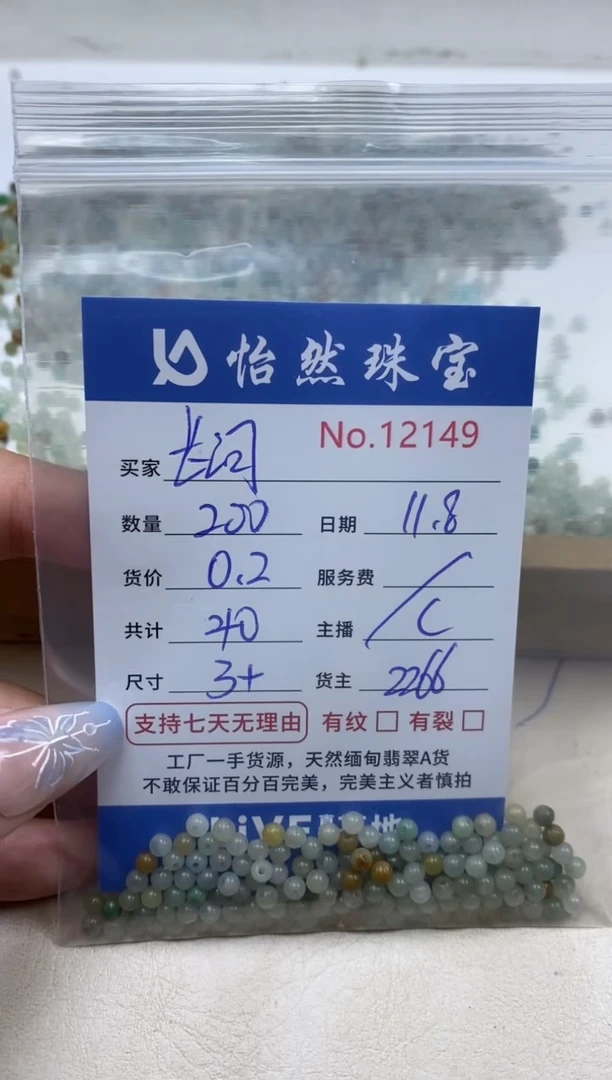 怡然珠宝
No.12149
买家 长河
数量 200 日期 11.8
货价 0.2 服务费 /
共计 40 主播 C
尺寸 3+ 货主 2266
支持七天无理由 有纹 □ 有裂 □
工厂一手货源，天然缅甸翡翠A货
不敢保证百分百完美，完美主义者慎拍
LiVE